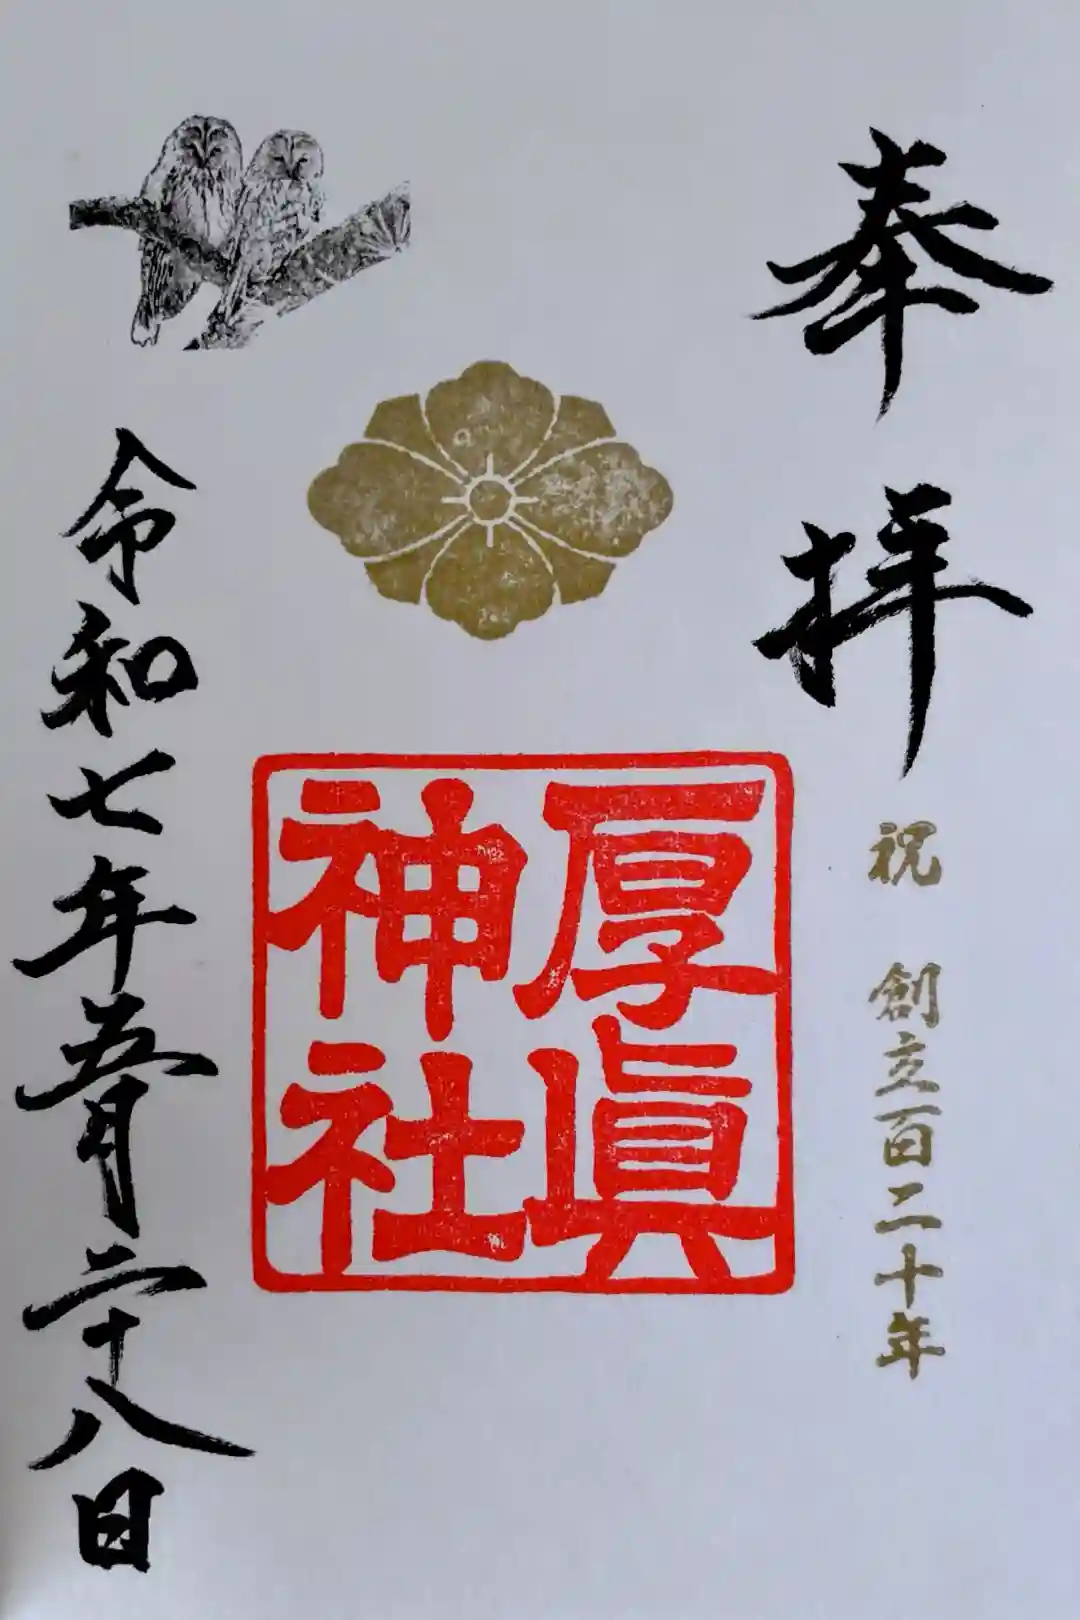 奉拝
祝 創立百二十年
厚眞
神社
令和七年五月二十八日